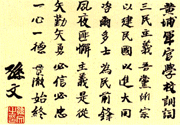 黃埔軍官學校訓詞
三民主義吾黨所宗
以建民國以進大同
咨爾多士為民前鋒
夙夜匪懈主義是從
矢勤矢勇必信必忠
一心一德貫徹始終
孫文